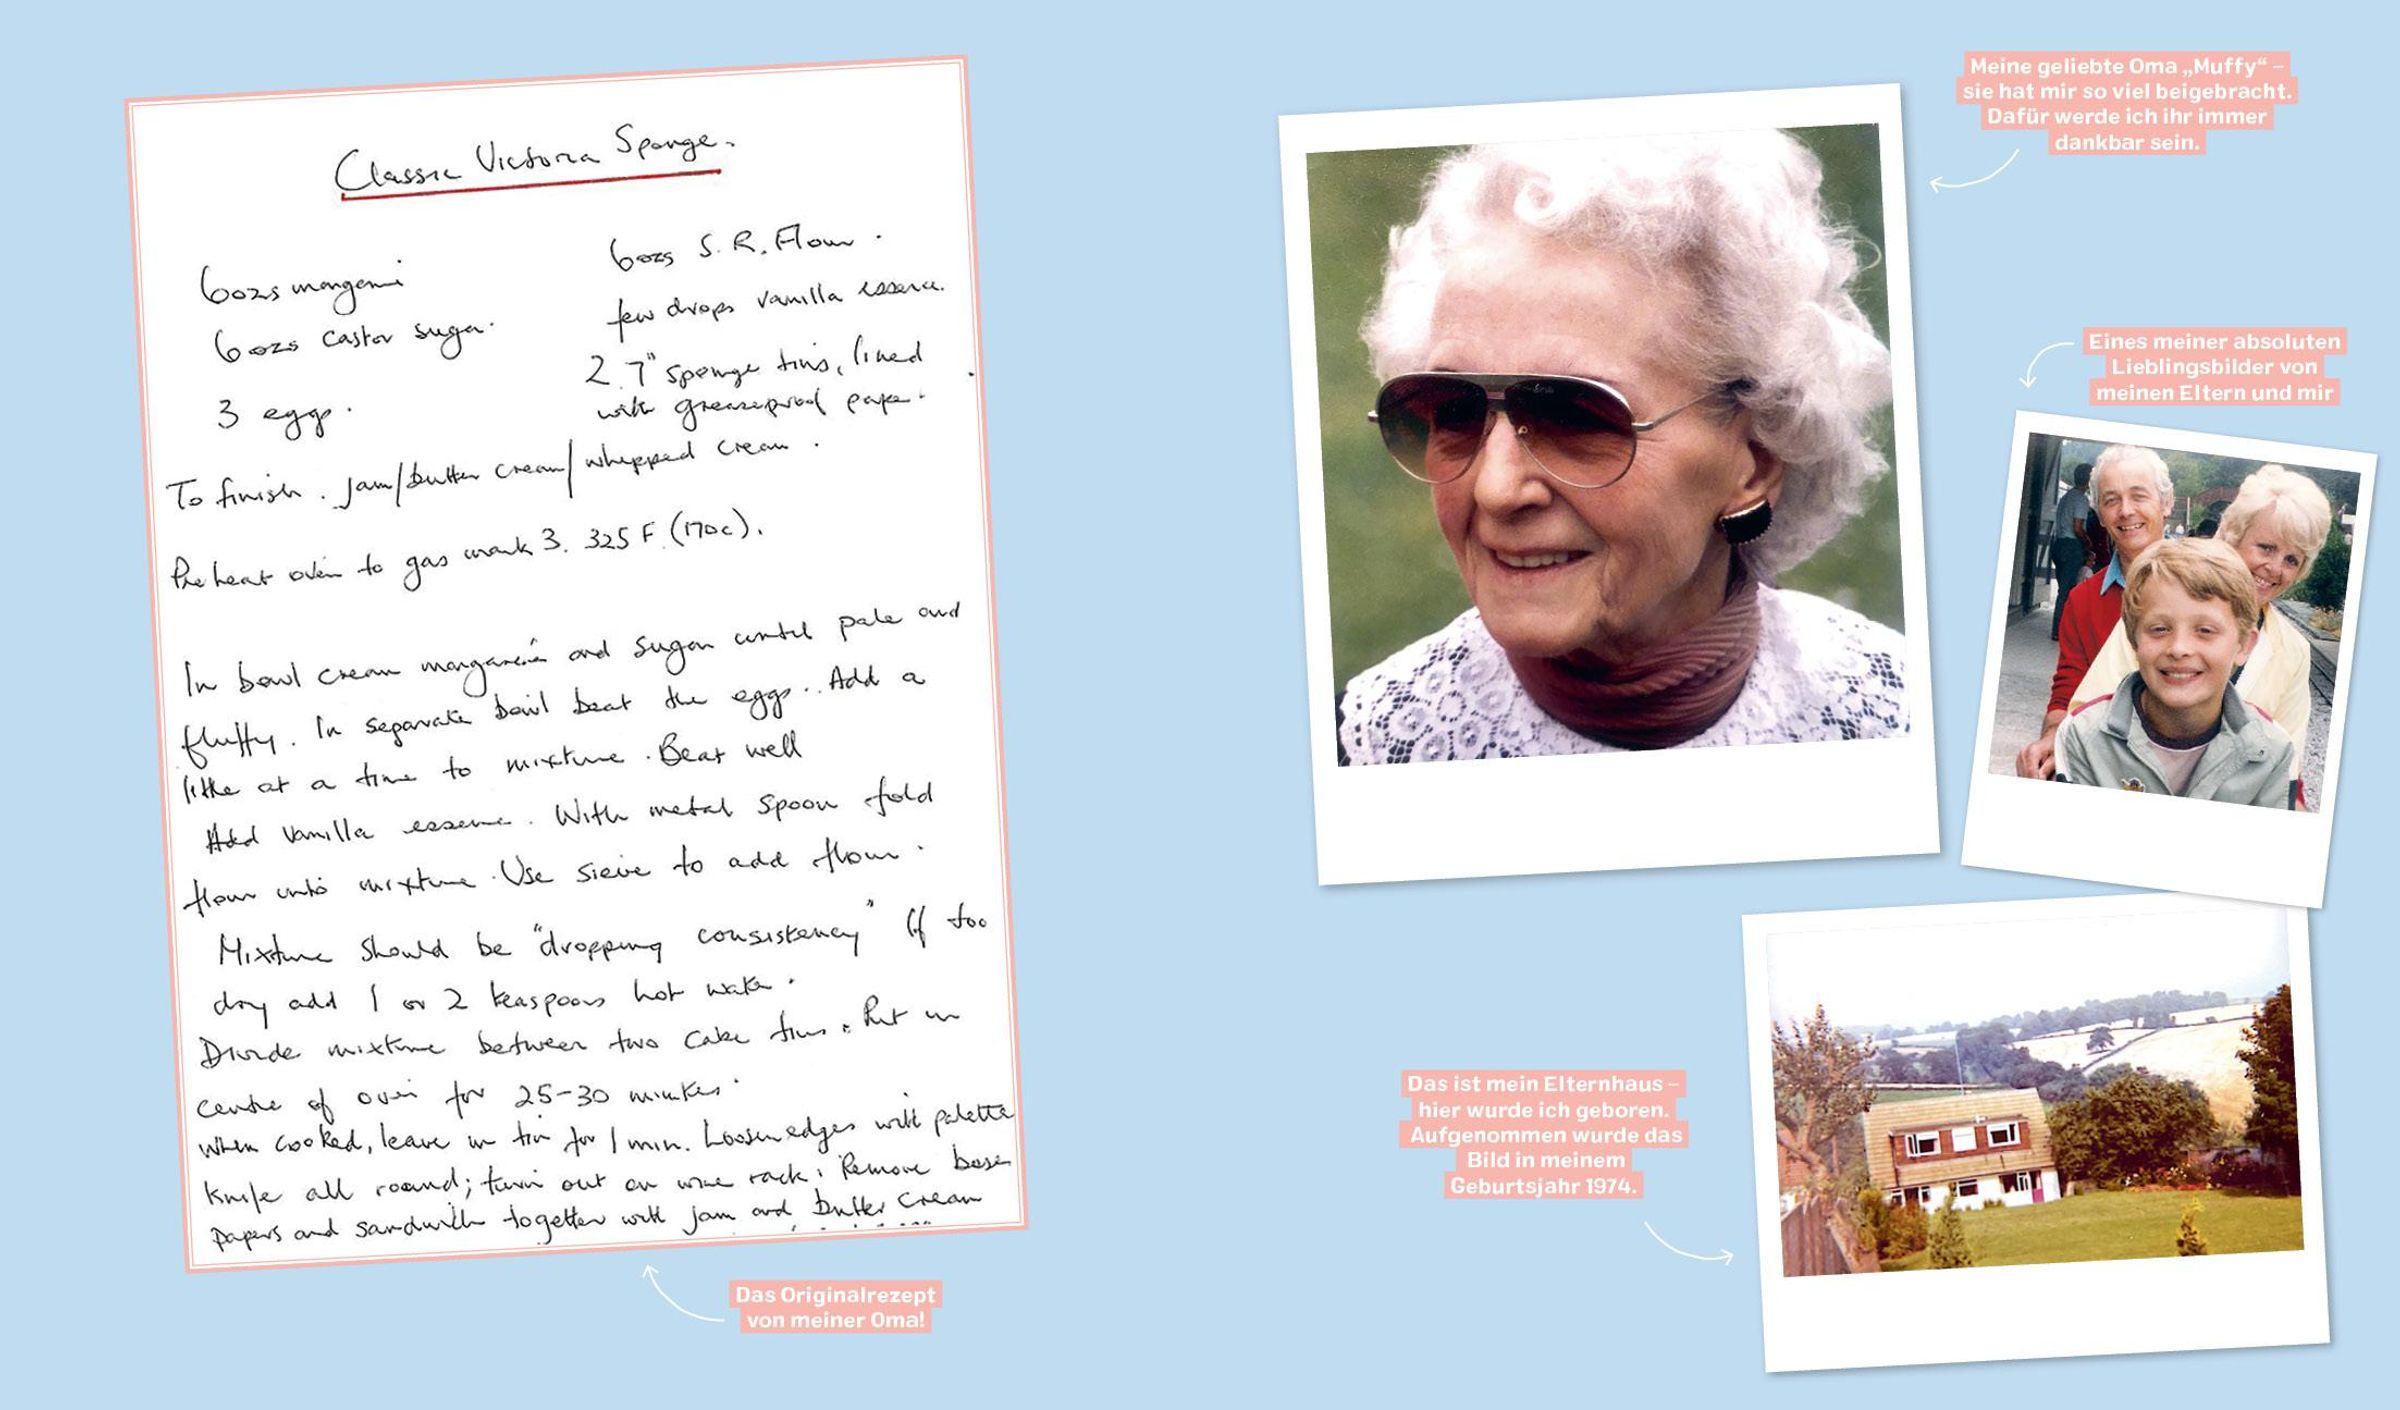 Classic Victoria Sponge.
6ozs margarine
6ozs castor sugar.
3 eggs.
6ozs S.R. Flour.
few drops vanilla essence.
2 7" sponge tins, lined
with greaseproof paper.
To finish. Jam/butter cream/whipped cream.
Pre heat oven to gas mark 3. 325 F. (170c).
In bowl cream margarine and sugar until pale and
fluffy. In separate bowl beat the eggs.. Add a
little at a time to mixture. Beat well
Add vanilla essence. With metal spoon fold
flour into mixture. Use sieve to add flour.
Mixture should be "dropping consistency" If too
dry add 1 or 2 teaspoons hot water.
Divide mixture between two cake tins. Put in
centre of oven for 25-30 minutes.
When cooked, leave in tin for 1 min. Loosen edges with palette
knife all round; turn out on wire rack. Remove base
papers and sandwich together with jam and butter cream
Das Originalrezept
von meiner Oma!
Meine geliebte Oma „Muffy“ –
sie hat mir so viel beigebracht.
Dafür werde ich ihr immer
dankbar sein.
Eines meiner absoluten
Lieblingsbilder von
meinen Eltern und mir
Das ist mein Elternhaus –
hier wurde ich geboren.
Aufgenommen wurde das
Bild in meinem
Geburtsjahr 1974.